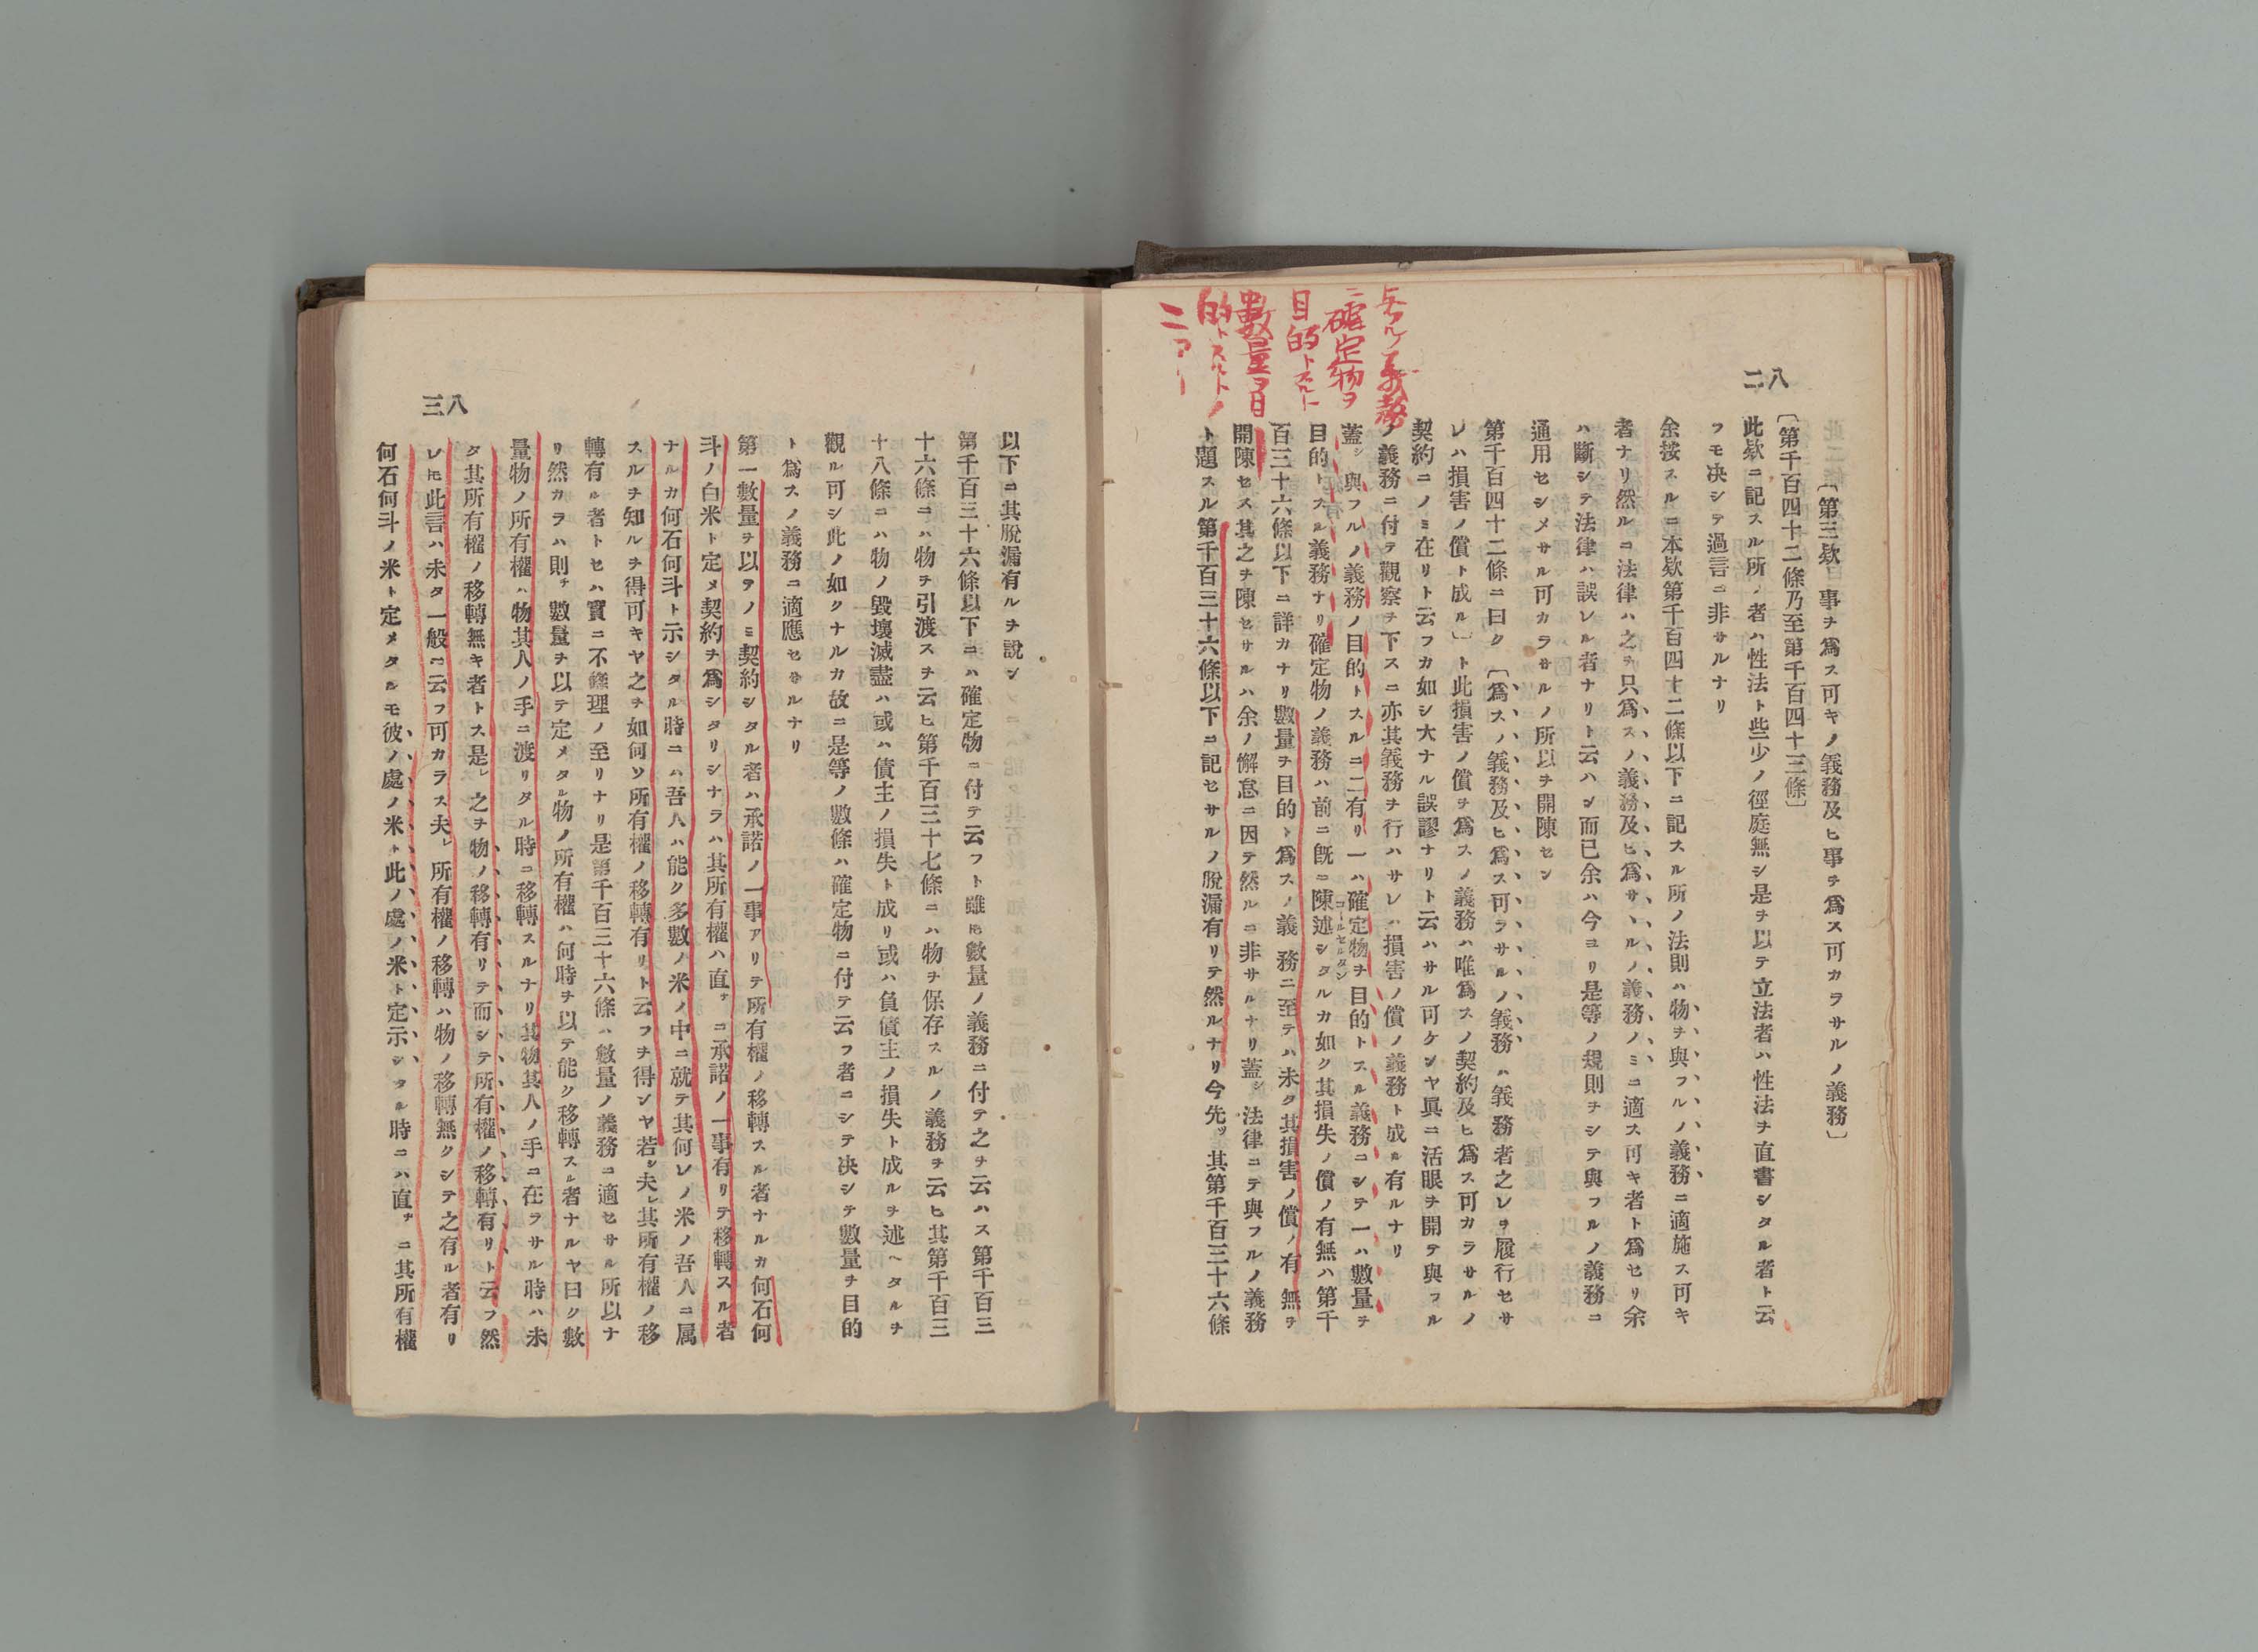 八二
〔第三欵 事ヲ爲ス可キノ義務及ヒ事ヲ爲ス可カラサルノ義務〕
〔第千百四十二條乃至第千百四十三條〕
此欵ニ記スル所ノ者ハ性法ト些少ノ徑庭無シ是ヲ以テ立法者ハ性法ヲ直書シタル者ト云
フモ决シテ過言ニ非サルナリ
余按スルニ本欵第千百四十二條以下ニ記スル所ノ法則ハ物ヲ與フルノ義務ニ適施ス可キ
者ナリ然ルニ法律ハ之ヲ只爲スノ義務及ヒ爲サヽルノ義務ノミニ適ス可キ者ト爲セリ余
ハ斷シテ法律ハ誤レル者ナリト云ハン而已余ハ今ヨリ是等ノ規則ヲシテ與フルノ義務ニ
通用セシメサル可カラサルノ所以ヲ開陳セン
第千百四十二條ニ曰ク〔爲スノ義務及ヒ爲ス可ラサルノ義務ハ義務者之レヲ履行セサ
レハ損害ノ償ト成ル〕ト此損害ノ償ヲ爲スノ義務ハ唯爲スノ契約及ヒ爲ス可カラサルノ
契約ニノミ在リト云フカ如シ大ナル誤謬ナリト云ハサル可ケンヤ眞ニ活眼ヲ開テ與フル
ノ義務ニ付テ觀察ヲ下スニ亦其義務ヲ行ハサレハ損害ノ償ノ義務ト成ル有ルナリ
蓋シ與フルノ義務ノ目的トスルニ二有リ一ハ確定物ヲ目的トスル義務ニシテ一ハ數量ヲ
コールセルタン
目的トスル義務ナリ確定物ノ義務ハ前ニ既ニ陳述シタルカ如ク其損失ノ償ノ有無ハ第千
百三十六條以下ニ詳カナリ數量ヲ目的ト爲スノ義務ニ至テハ未タ其損害ノ償ノ有無ヲ
開陳セス其之ヲ陳セサルハ余ノ懈怠ニ因テ然ルニ非サルナリ蓋シ法律ニテ與フルノ義務
ト題スル第千百三十六條以下ニ記セサルノ脫漏有リテ然ルナリ今先ツ其第千百三十六條
與フル義務
ニ確定物ヲ
目的トスルト
數量ヲ目
的トスルトノ
二アリ
八三
以下ニ其脫漏有ルヲ說ン
第千百三十六條以下ニハ確定物ニ付テ云フト雖𪜈數量ノ義務ニ付テ之ヲ云ハス第千百三
十六條ニハ物ヲ引渡スヲ云ヒ第千百三十七條ニハ物ヲ保存スルノ義務ヲ云ヒ其第千百三
十八條ニハ物ノ毀壞滅盡ハ或ハ債主ノ損失ト成リ或ハ負債主ノ損失ト成ルヲ述ヘタルヲ
觀ル可シ此ノ如クナルカ故ニ是等ノ數條ハ確定物ニ付テ云フ者ニシテ决シテ數量ヲ目的
ト爲スノ義務ニ適應セサルナリ
第一數量ヲ以テノミ契約シタル者ハ承諾ノ一事アリテ所有權ノ移轉スル者ナルカ何石何
斗ノ白米ト定メ契約ヲ爲シタリシナラハ其所有權ハ直チニ承諾ノ一事有リテ移轉スル者
ナルカ何石何斗ト示シタル時ニハ吾人ハ能ク多數ノ米ノ中ニ就テ其何レノ米ノ吾人ニ属
スルヲ知ルヲ得可キヤ之ヲ如何ソ所有權ノ移轉有リト云フヲ得ンヤ若シ夫レ其所有權ノ移
轉有ル者トセハ實ニ不條理ノ至リナリ是第千百三十六條ハ數量ノ義務ニ適セサル所以ナ
リ然カラハ則チ數量ヲ以テ定メタル物ノ所有權ハ何時ヲ以テ能ク移轉スル者ナルヤ曰ク數
量物ノ所有權ハ物其人ノ手ニ渡リタル時ニ移轉スルナリ其物其人ノ手ニ在ラサル時ハ未
タ其所有權ノ移轉無キ者トス是レ之ヲ物ノ移轉有リテ而シテ所有權ノ移轉有リト云フ然
レ𪜈此言ハ未タ一般ニ云フ可カラス夫レ所有權ノ移轉ハ物ノ移轉無クシテ之有ル者有リ
何石何斗ノ米ト定メタルモ彼ノ處ノ米ト此ノ處ノ米ト定示シタル時ニハ直チニ其所有權